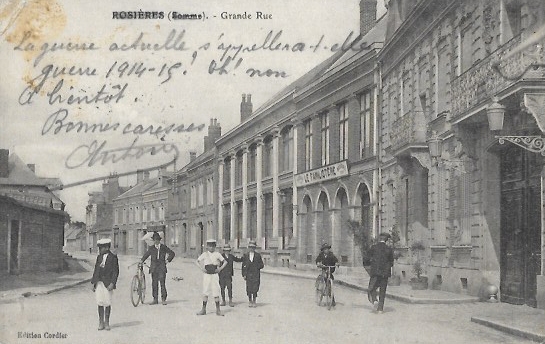 ROSIÈRES (Somme). - Grande Rue
La guerre actuelle s'appellera-t-elle
guerre 1914-15? Oh! non
A bientôt.
Bonnes caresses
Antoine
LE FAMILISTÈRE
Edition Cordier